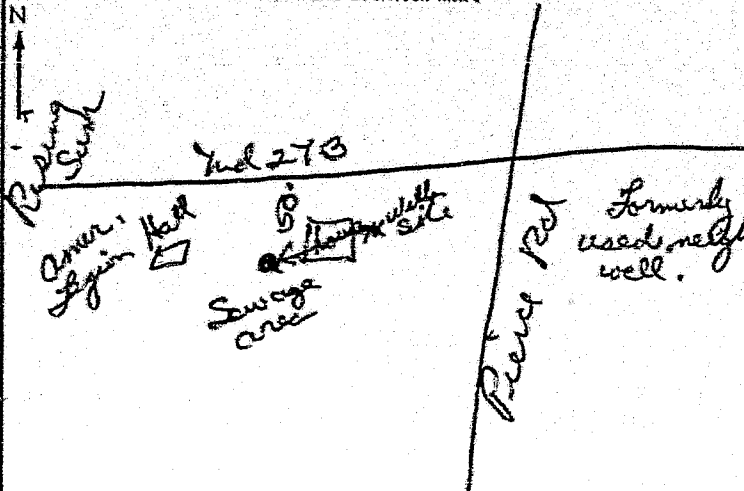 N
Rising
Sun
Md 273
Amer.
Legion Hall
50'
House
Well
site
Sewage
area
Pierce Rd
Formerly
used neigh
well.